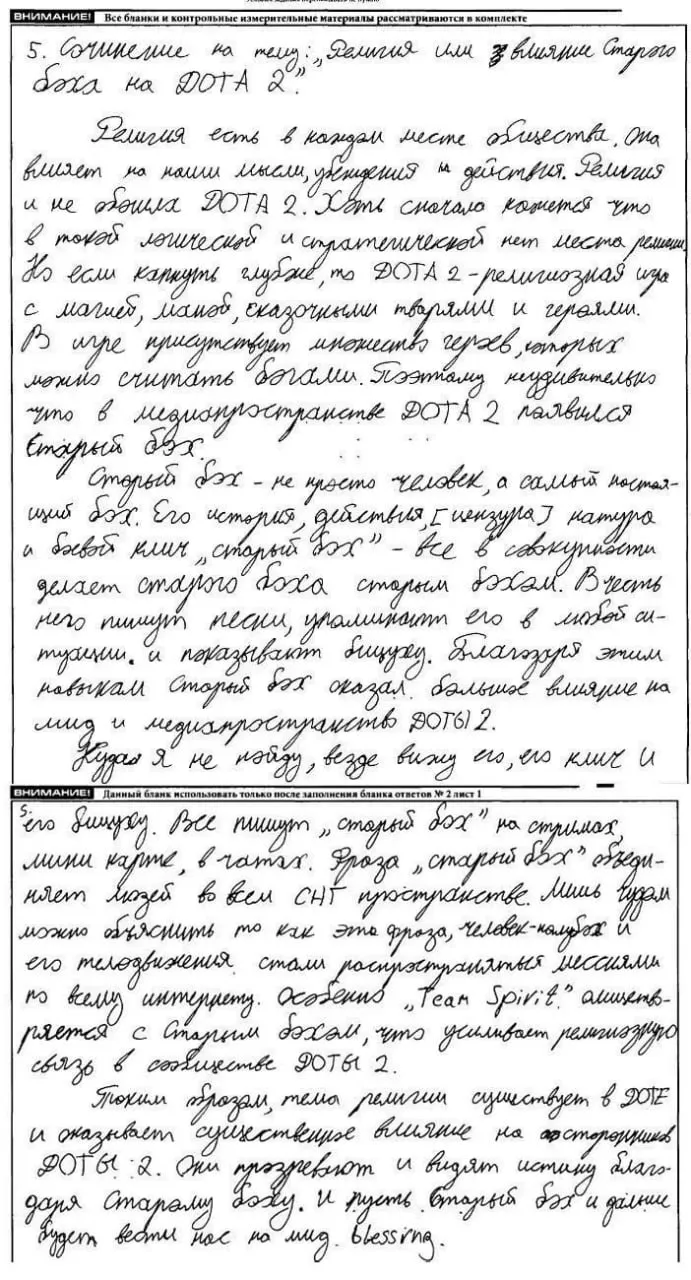 ВНИМАНИЕ! Все бланки и контрольные измерительные материалы рассматриваются в комплекте
5. Сочинение на тему: „Религия или влияние Старого
бэха на DOTA 2."
Религия есть в каждом месте общества. Она
влияет на наши мысли, убеждения и действия. Религия
и не обошла DOTA 2. Хоть сначала кажется что
в такой логической и стратегической нет места религии.
Но если капнуть глубже, то DOTA 2 - религиозная игра
с магией, маной, сказочными тварями и героями.
В игре присутствует множество героев, которых
можно считать богами. Поэтому неудивительно
что в медиапространстве DOTA 2 появился
Старый бэх.
Старый бэх - не просто человек, а самый настоя-
щий бэх. Его история, действия, [цензура] натура
и боевой клич „старый бэх" - все в совокупности
делает старого бэха старым бэхэм. В честь
него пишут песни, упоминают его в любой си-
туации. и показывают бицуху. Благодаря этим
навыкам Старый бэх оказал большое влияние на
мид и медиапространство ДОТЫ 2.
Куда я не пойду, везде вижу его, его клич и
ВНИМАНИЕ! Данный бланк использовать только после заполнения бланка ответов № 2 лист 1
5.
его бицуху. Все пишут „старый бэх" на стримах,
мини карте, в чатах. Фраза „старый бэх" объеди-
няет людей во всем СНГ пространстве. Лишь чудом
можно объяснить то как эта фраза, человек-полубэх и
его телодвижения стали распространяться мессиями
по всему интернету. Особенно „Team Spirit"
с Старым бэхэм, что усиливает религиозную
связь в сообществе ДОТЫ 2.
Таким образом, тема религии существует в DOTE
и оказывает существенное влияние на сторонников
ДОТЫ 2. Они прозревают и видят истину благо-
даря Старому бэху. И пусть Старый бэх и дальше
будет вести нас на мид. blessing.